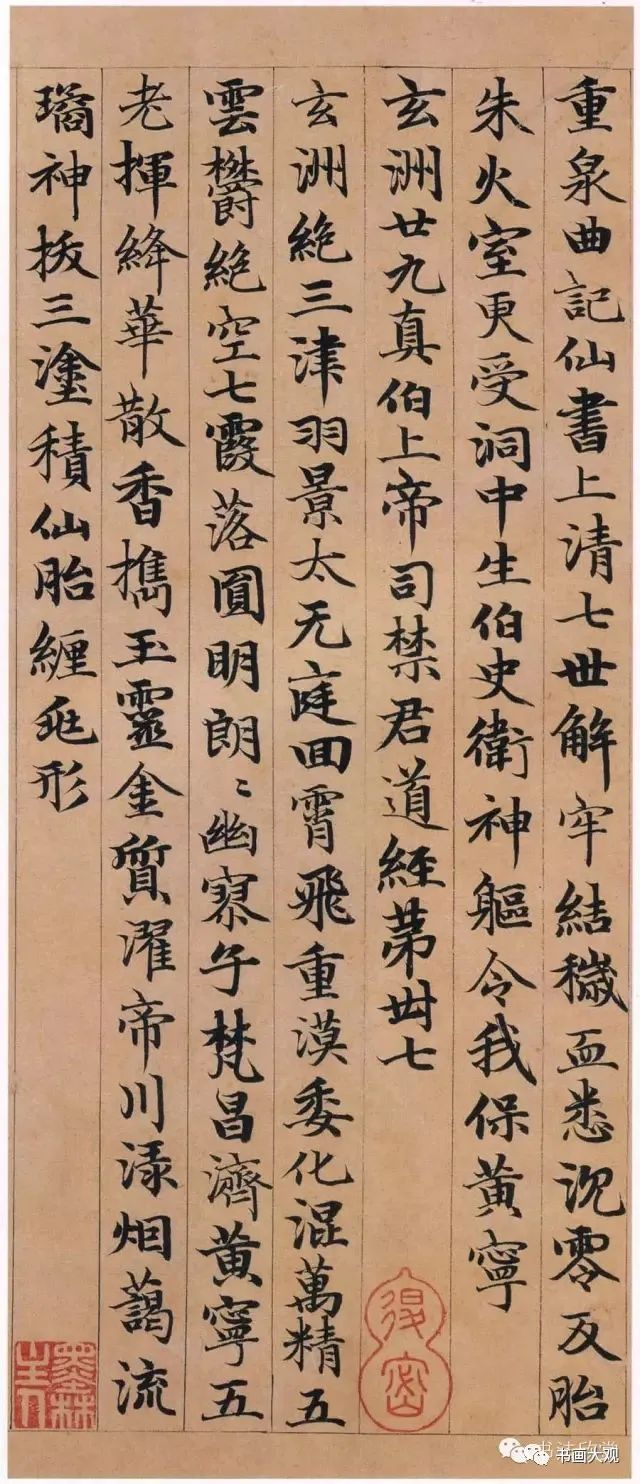 重泉曲記仙書上清七世解牢結穢血悉沉零反胎
朱火室更受洞中生伯史衛神軀令我保黃寧
玄洲廿九真伯上帝司禁君道經第卌七
玄洲絕三津羽景太无庭回霄飛重漠委化混萬精五
雲欝絕空七霞落圓明朗〻幽寮午梵昌濟黃寧五
老揮絳華散香擕玉靈金質濯帝川渌烟藹流
璚神拔三塗積仙胎纏死形
得密
墨林山人
书画大观